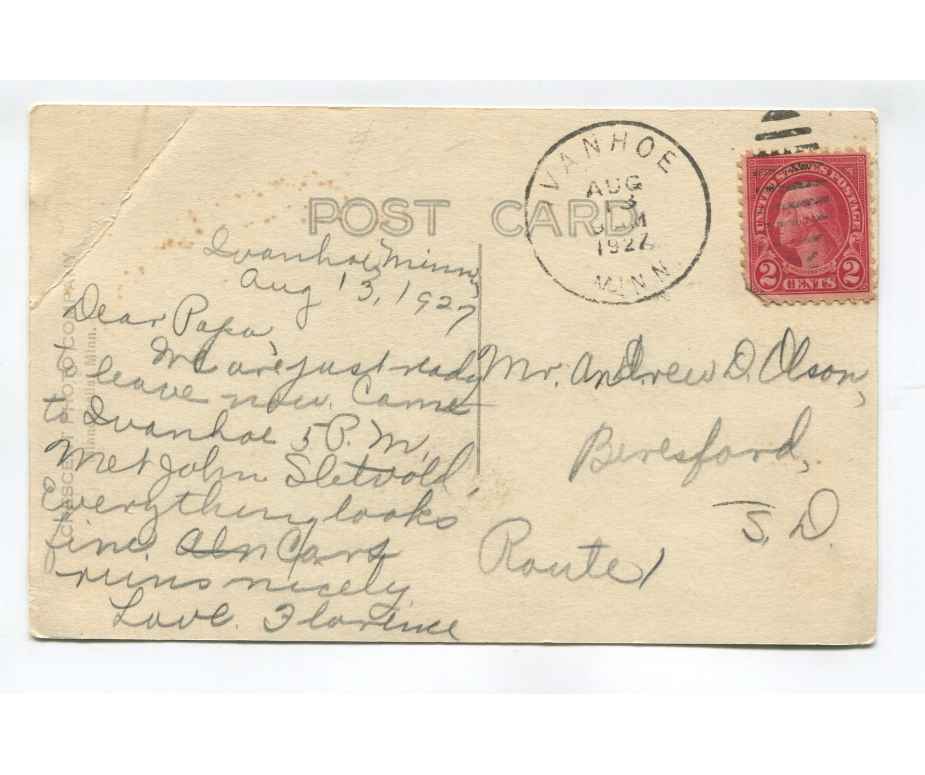 POST CARD
IVANHOE
AUG
3
M
1927
MINN.
UNITED STATES POSTAGE
2 CENTS 2
CRESCENT PHOTO COMPANY
Minn.
Ivanhoe, Minn,
Aug 13, 1927
Dear Papa,
We are just ready
to leave now. Came
to Ivanhoe 5 P. M,
Met John Sletvold,
Everything looks
fine. Cars
runs nicely
Love. Florence
Mr. Andrew D. Olson,
Beresford,
S, D.
Route 1